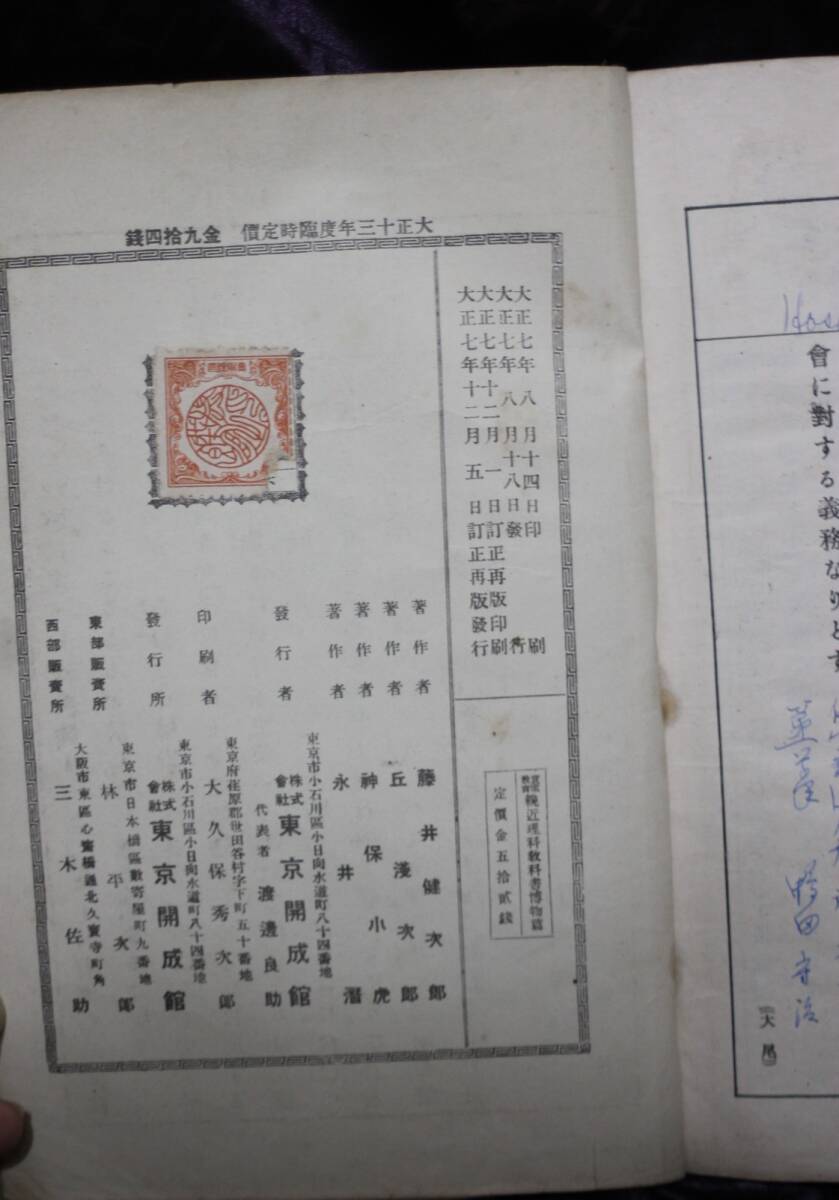 會に對する義務なりとす
鴨田守治
大尾
大正十三年度臨時定價 金九拾四錢
大正七年八月十四日印刷
大正七年八月十八日發行
大正七年十二月一日訂正再版印刷
大正七年十二月五日訂正再版發行
晩近理科敎科書博物篇
定價金五拾貳錢
著作者 藤井健次郎
著作者 丘淺次郎
著作者 神保小虎
著作者 永井潛
東京市小石川區小日向水道町八十四番地
發行者 株式會社 東京開成館
代表者 渡邊良助
東京府荏原郡世田谷村字下町五十番地
印刷者 大久保秀次郎
東京市小石川區小日向水道町八十四番地
發行所 株式會社 東京開成館
東京市日本橋區數寄屋町九番地
東部販賣所 林平次郎
大阪市東區心齋橋通北久寶寺町角
西部販賣所 三木佐助